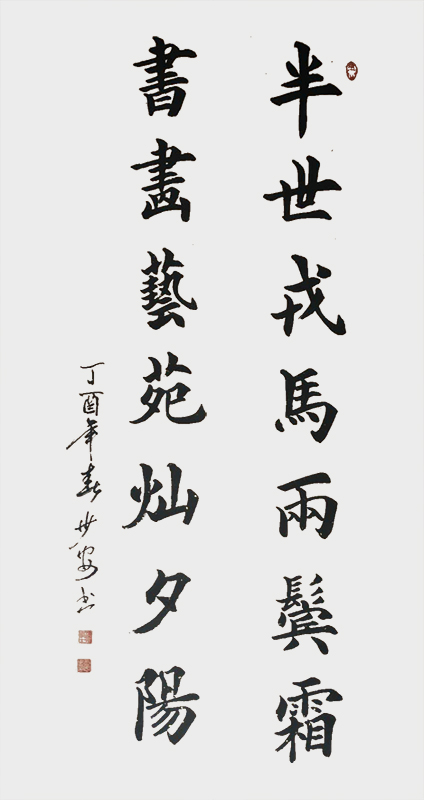 半世戎馬兩鬓霜
書畫藝苑灿夕陽
丁酉年春世安书